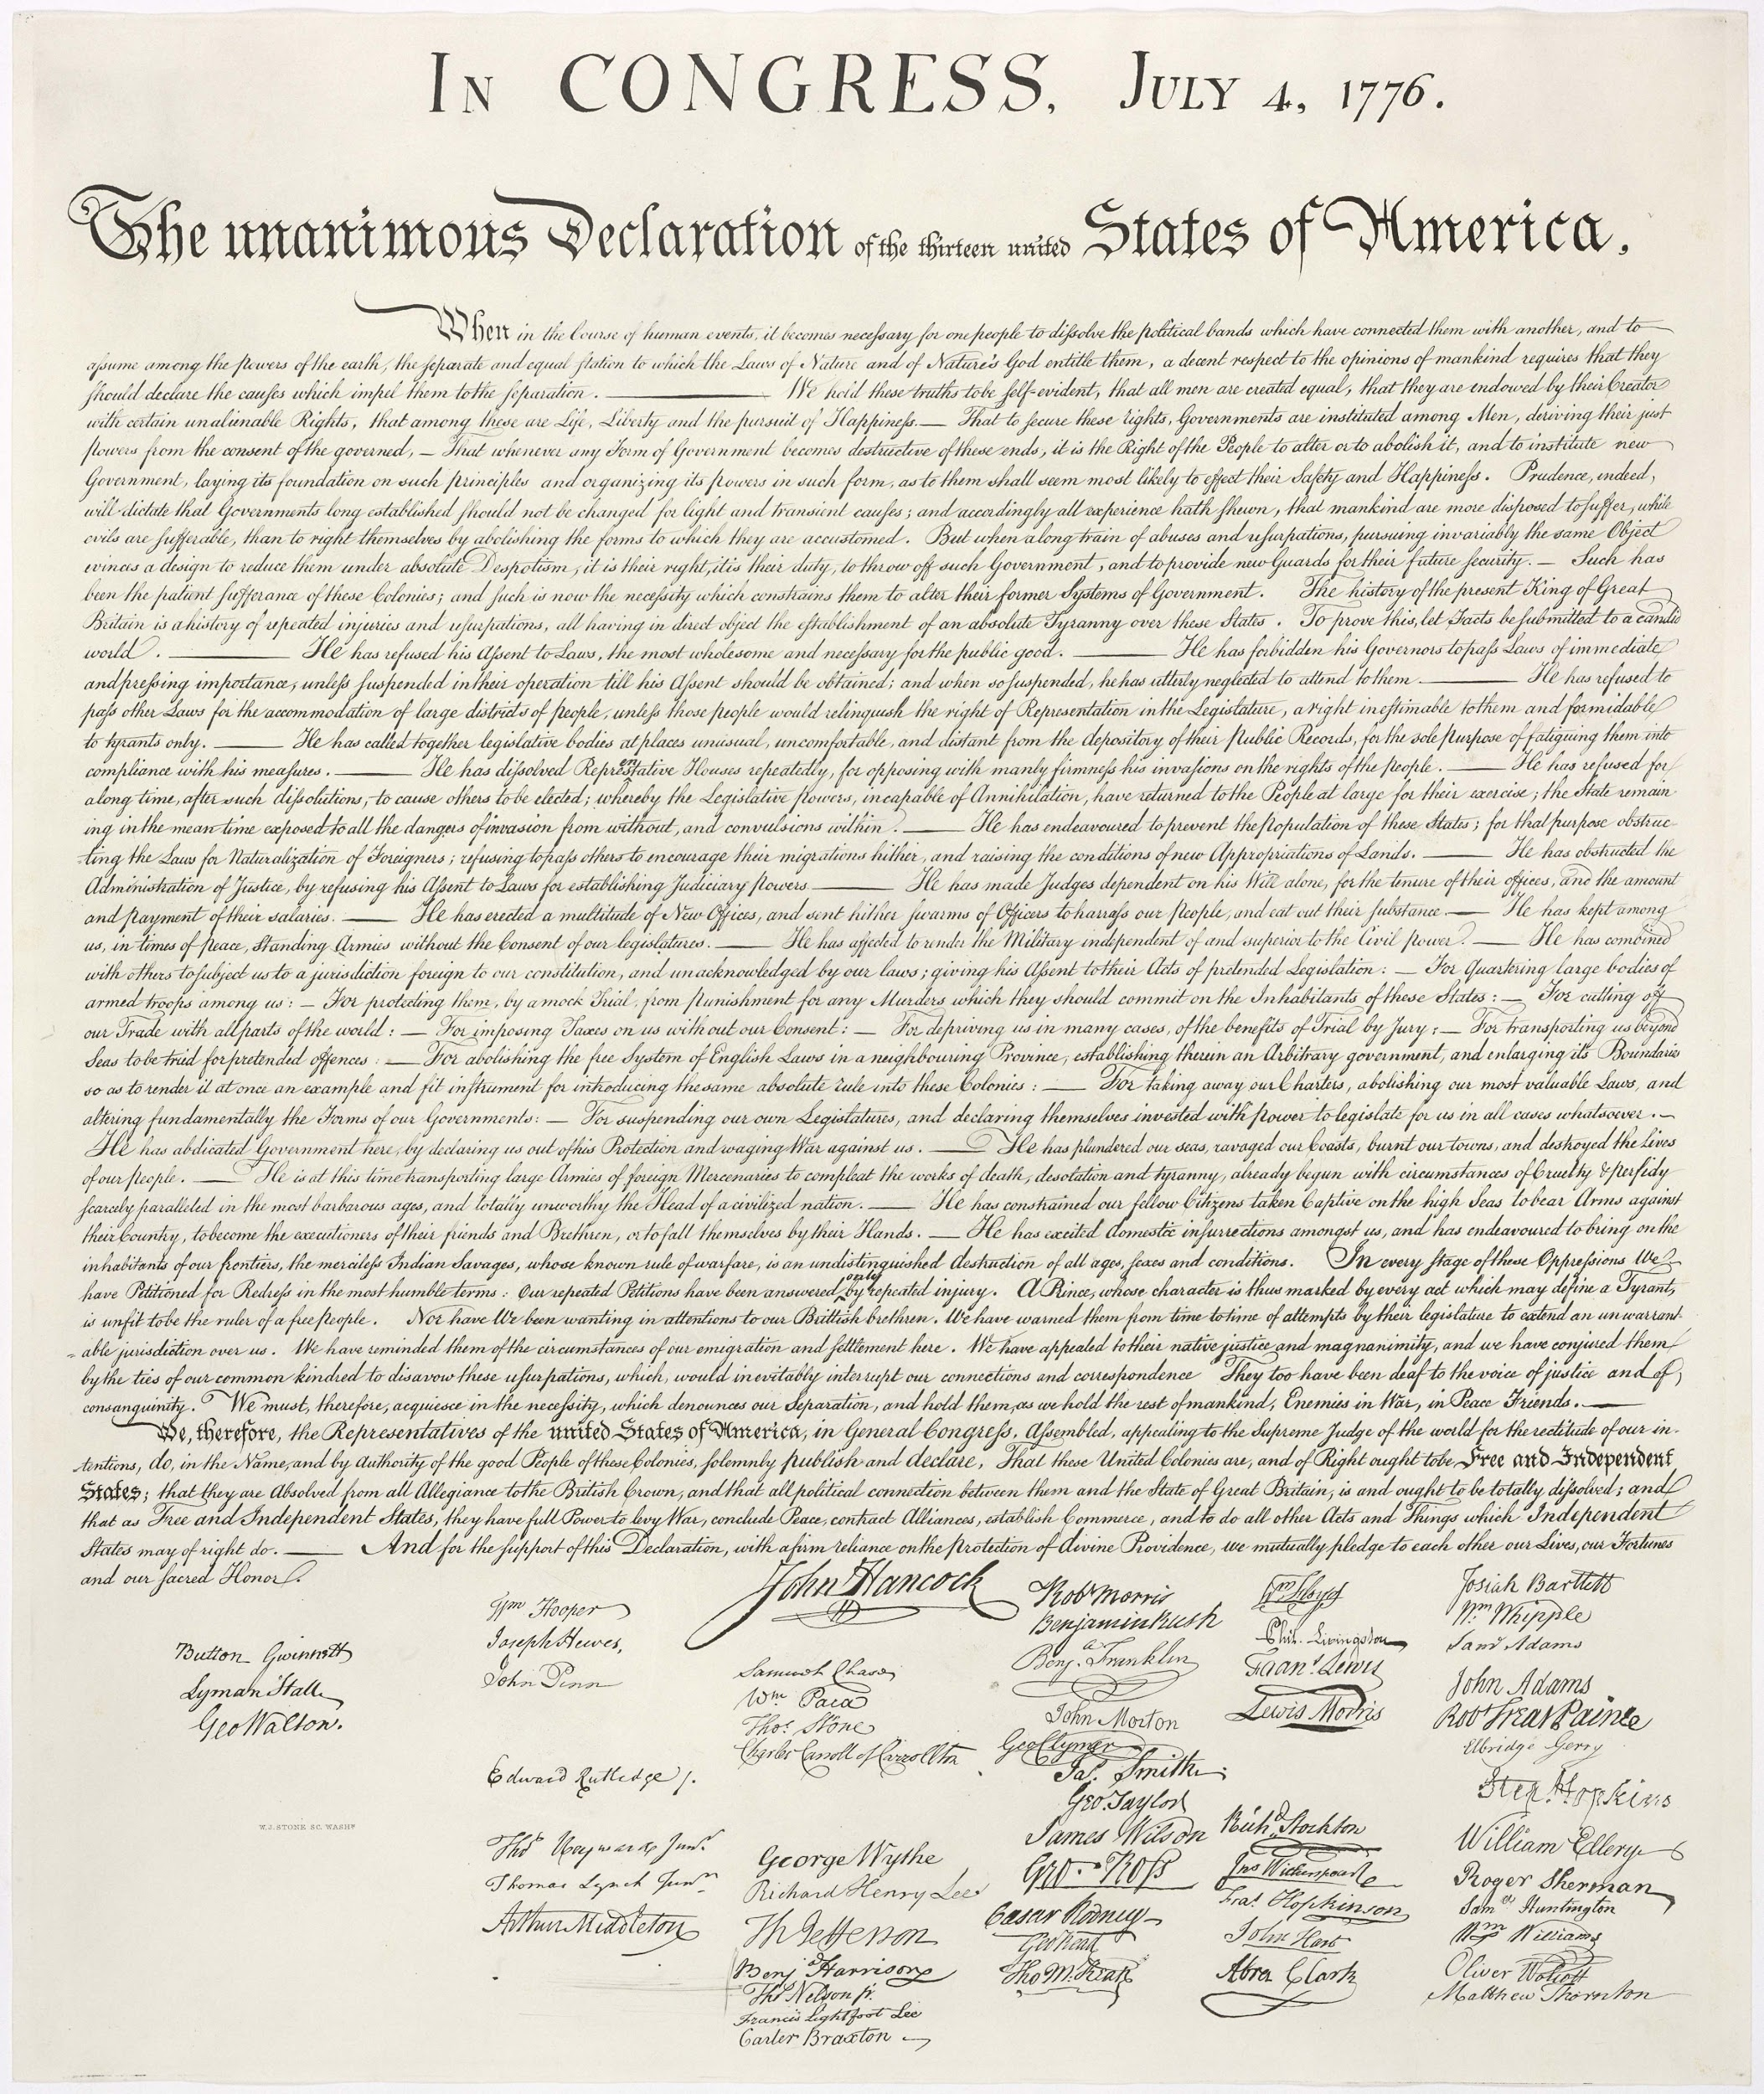 IN CONGRESS, JULY 4, 1776.
The unanimous Declaration of the thirteen united States of America,
When in the Course of human events, it becomes necessary for one people to dissolve the political bands which have connected them with another, and to
assume among the powers of the earth, the separate and equal station to which the Laws of Nature and of Nature's God entitle them, a decent respect to the opinions of mankind requires that they
should declare the causes which impel them to the separation. — We hold these truths to be self-evident, that all men are created equal, that they are endowed by their Creator
with certain unalienable Rights, that among these are Life, Liberty and the pursuit of Happiness. — That to secure these rights, Governments are instituted among Men, deriving their just
powers from the consent of the governed, — That whenever any Form of Government becomes destructive of these ends, it is the Right of the People to alter or to abolish it, and to institute new
Government, laying its foundation on such principles and organizing its powers in such form, as to them shall seem most likely to effect their Safety and Happiness. Prudence, indeed,
will dictate that Governments long established should not be changed for light and transient causes; and accordingly all experience hath shewn, that mankind are more disposed to suffer, while
evils are sufferable, than to right themselves by abolishing the forms to which they are accustomed. But when a long train of abuses and usurpations, pursuing invariably the same Object
evinces a design to reduce them under absolute Despotism, it is their right, it is their duty, to throw off such Government, and to provide new Guards for their future security. — Such has
been the patient sufferance of these Colonies; and such is now the necessity which constrains them to alter their former Systems of Government. The history of the present King of Great
Britain is a history of repeated injuries and usurpations, all having in direct object the establishment of an absolute Tyranny over these States. To prove this, let Facts be submitted to a candid
world. — He has refused his Assent to Laws, the most wholesome and necessary for the public good. — He has forbidden his Governors to pass Laws of immediate
and pressing importance, unless suspended in their operation till his Assent should be obtained; and when so suspended, he has utterly neglected to attend to them. — He has refused to
pass other Laws for the accommodation of large districts of people, unless those people would relinquish the right of Representation in the Legislature, a right inestimable to them and formidable
to tyrants only. — He has called together legislative bodies at places unusual, uncomfortable, and distant from the depository of their Public Records, for the sole purpose of fatiguing them into
compliance with his measures. — He has dissolved Representative Houses repeatedly, for opposing with manly firmness his invasions on the rights of the people. — He has refused for
a long time, after such dissolutions, to cause others to be elected; whereby the Legislative powers, incapable of Annihilation, have returned to the People at large for their exercise; the State remain
ing in the mean time exposed to all the dangers of invasion from without, and convulsions within. — He has endeavoured to prevent the population of these States; for that purpose obstruc-
ting the Laws for Naturalization of Foreigners; refusing to pass others to encourage their migrations hither, and raising the conditions of new Appropriations of Lands. — He has obstructed the
Administration of Justice, by refusing his Assent to Laws for establishing Judiciary powers. — He has made Judges dependent on his Will alone, for the tenure of their offices, and the amount
and payment of their salaries. — He has erected a multitude of New Offices, and sent hither swarms of Officers to harrass our people, and eat out their substance. — He has kept among
us, in times of peace, Standing Armies without the Consent of our legislatures. — He has affected to render the Military independent of and superior to the Civil power. — He has combined
with others to subject us to a jurisdiction foreign to our constitution, and unacknowledged by our laws; giving his Assent to their Acts of pretended Legislation: — For Quartering large bodies of
armed troops among us: — For protecting them, by a mock Trial, from punishment for any Murders which they should commit on the Inhabitants of these States: — For cutting off
our Trade with all parts of the world: — For imposing Taxes on us without our Consent: — For depriving us in many cases, of the benefits of Trial by Jury: — For transporting us beyond
Seas to be tried for pretended offences: — For abolishing the free System of English Laws in a neighbouring Province, establishing therein an Arbitrary government, and enlarging its Boundaries
so as to render it at once an example and fit instrument for introducing the same absolute rule into these Colonies: — For taking away our Charters, abolishing our most valuable Laws, and
altering fundamentally the Forms of our Governments: — For suspending our own Legislatures, and declaring themselves invested with power to legislate for us in all cases whatsoever. —
He has abdicated Government here, by declaring us out of his Protection and waging War against us. — He has plundered our seas, ravaged our Coasts, burnt our towns, and destroyed the lives
of our people. — He is at this time transporting large Armies of foreign Mercenaries to compleat the works of death, desolation and tyranny, already begun with circumstances of Cruelty & perfidy
scarcely paralleled in the most barbarous ages, and totally unworthy the Head of a civilized nation. — He has constrained our fellow Citizens taken Captive on the high Seas to bear Arms against
their Country, to become the executioners of their friends and Brethren, or to fall themselves by their Hands. — He has excited domestic insurrections amongst us, and has endeavoured to bring on the
inhabitants of our frontiers, the merciless Indian Savages, whose known rule of warfare, is an undistinguished destruction of all ages, sexes and conditions. In every stage of these Oppressions We
have Petitioned for Redress in the most humble terms: Our repeated Petitions have been answered only by repeated injury. A Prince, whose character is thus marked by every act which may define a Tyrant,
is unfit to be the ruler of a free people. Nor have We been wanting in attentions to our Brittish brethren. We have warned them from time to time of attempts by their legislature to extend an unwarrant-
able jurisdiction over us. We have reminded them of the circumstances of our emigration and settlement here. We have appealed to their native justice and magnanimity, and we have conjured them
by the ties of our common kindred to disavow these usurpations, which, would inevitably interrupt our connections and correspondence They too have been deaf to the voice of justice and of
consanguinity. We must, therefore, acquiesce in the necessity, which denounces our Separation, and hold them, as we hold the rest of mankind, Enemies in War, in Peace Friends. —
We, therefore, the Representatives of the united States of America, in General Congress, Assembled, appealing to the Supreme Judge of the world for the rectitude of our in-
tentions, do, in the Name, and by Authority of the good People of these Colonies, solemnly publish and declare, That these United Colonies are, and of Right ought to be Free and Independent
States; that they are Absolved from all Allegiance to the British Crown, and that all political connection between them and the State of Great Britain, is and ought to be totally dissolved; and
that as Free and Independent States, they have full Power to levy War, conclude Peace, contract Alliances, establish Commerce, and to do all other Acts and Things which Independent
States may of right do. — And for the support of this Declaration, with a firm reliance on the protection of divine Providence, we mutually pledge to each other our Lives, our Fortunes
and our sacred Honor.
Button Gwinnett
Lyman Hall
Geo Walton.
Wm Hooper
Joseph Hewes,
John Penn
Edward Rutledge /.
Thos Heyward Junr.
Thomas Lynch Junr.
Arthur Middleton
John Hancock
Samuel Chase
Wm Paca
Thos. Stone
Charles Carroll of Carrollton
George Wythe
Richard Henry Lee
Th Jefferson
Benj Harrison
Thos Nelson jr.
Francis Lightfoot Lee
Carter Braxton
Robt Morris
Benjamin Rush
Benj. Franklin
John Morton
Geo Clymer
Jas. Smith
Geo. Taylor
James Wilson
Geo. Ross
Caesar Rodney
Geo Read
Tho M:Kean
Wm Floyd
Phil. Livingston
Frans. Lewis
Lewis Morris
Richd. Stockton
Jno Witherspoon
Fras. Hopkinson
John Hart
Abra Clark
Josiah Bartlett
Wm. Whipple
Saml Adams
John Adams
Robt Treat Paine
Elbridge Gerry
Step. Hopkins
William Ellery
Roger Sherman
Samel Huntington
Wm Williams
Oliver Wolcott
Matthew Thornton
W. J. STONE SC. WASHN